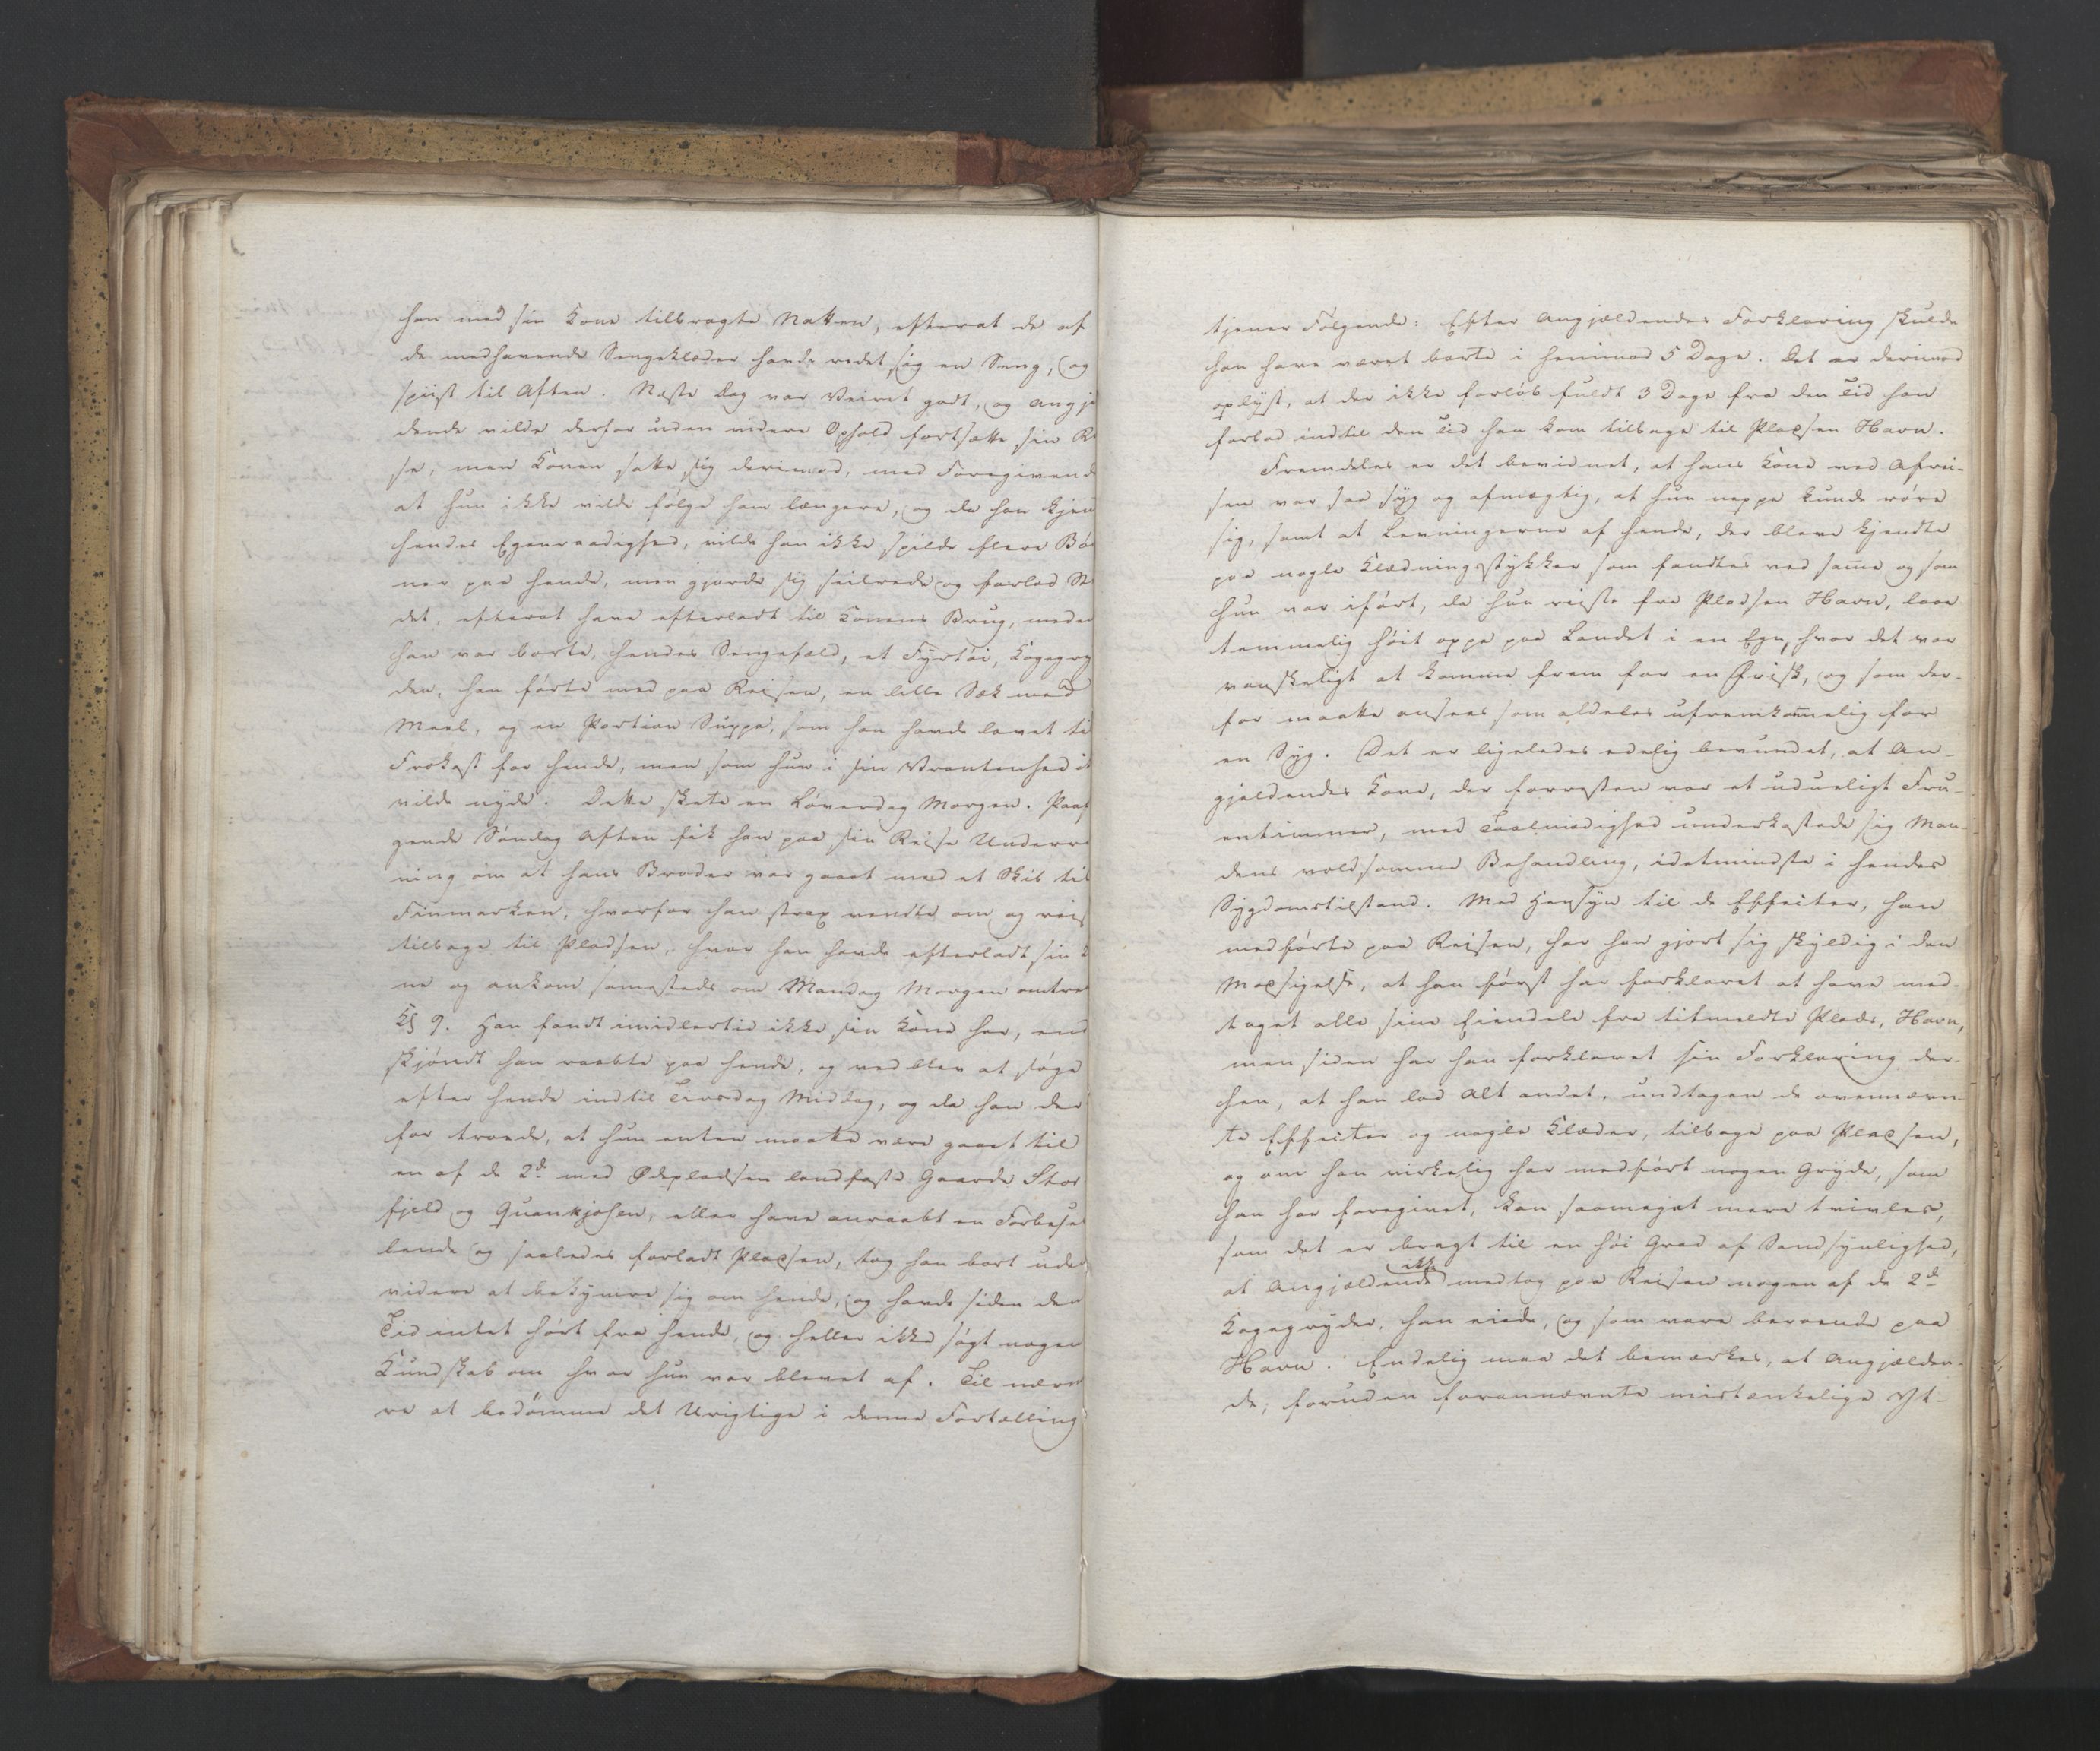 han med sin Kone tilbragte Natten, efterat de af
de medhavende Sengeklæder havde redet sig en Seng, og
spiist til Aften. Næste Dag var Veiret godt, og Angjæ
dende vilde derfor uden videre Ophold fortsætte sin Re
se, men Konen satte sig derimod, med Foregivende
at hun ikke vilde følge ham længere, og da han kjen
hendes Egenraadighed, vilde han ikke spilde flere Bø
ner paa hende, men gjorde sig seilrede og forlod St
det, efterat have efterladt til Konens Brug, meden
han var borte, hendes Sengefæld, et Fyrtøi, Kogegry
den, han førte med paa Reisen, en lille Sæk med
Meel, og en Portion Suppe, som han havde lavet ti
Frokost for hende, men som hun i sin Vrantenhed ik
vilde nyde. Dette skete en Løverdag Morgen. Paaf
gende Søndag Aften fik han paa sin Reise Underre
ning om at hans Broder var gaaet med et Skib til
Finmarken, hvorfor han strax vendte om og reis
tilbage til Pladsen, hvor han havde efterladt sin K
ne og ankom sammesteds om Mandag Morgen omtre
Kl 9. Han fandt imidlertid ikke sin Kone her, end
skjøndt han raabte paa hende, og ved blev at søge
efter hende indtil Tirsdag Middag, og da han der
for troede, at hun enten maatte være gaaet til
en af de 2de med Ødepladsen landfaste Gaarde Stor
fjeld og Quankjosen, eller have anraabt en Forbisei
lende og saaledes forladt Pladsen, tog han bort uden
videre at bekymre sig om hende, og havde siden den
Tid intet hørt fra hende, og heller ikke søgt nogen
Kundskab om hvor hun var blevet af. Til nærme
re at bedømme det Urigtige i denne Fortælling
tjener Følgende: Efter Angjældendes Forklaring skulde
han have været borte i henimod 5 Dage. Det er derimod
oplyst, at der ikke forløb fuldt 3 Dage fra den Tid han
forlod indtil den Tid han kom tilbage til Pladsen Havn.
Fremdeles er det bevidnet, at hans Kone ved Afrei-
sen var saa syg og afmægtig, at hun neppe kunde røre
sig, samt at Levningerne af hende, der bleve kjendte
paa nogle Klædningsstykker som fandtes ved samme og som
hun var iført, da hun reiste fra Pladsen Havn, laae
temmelig høit oppe paa Landet i en Egn, hvor det var
vanskeligt at komme frem for en Frisk, og som der-
for maatte ansees som aldeles ufremkommelig for
en Syg. Det er ligeledes edelig bevundet, at An-
gjeldendes Kone, der forresten var et udueligt Fru-
entimmer, med Taalmodighed underkastede sig Man-
dens voldsomme Behandling, idetmindste i hendes
Sygdomstilstand. Med Hensyn til de Effecter, han
medførte paa Reisen, har han gjort sig skyldig i den
Modsigelse, at han først har forklaret at have med-
taget alle sine Eiendele fra titmeldte Plads, Havn,
men siden har han forklaret sin Forklaring der-
hen, at han lod Alt andet, undtagen de ovennævn-
te Effecter og nogle Klæder, tilbage paa Pladsen,
og om han virkelig har medført nogen Gryde, som
han har foregivet, kan saameget mere tvivles,
som det er bragt til en høi Grad af Sandsynlighed,
at Angjældende ikke medtog paa Reisen nogen af de 2de
Kogegryder, han eiede, og som vare beroende paa
Havn. Endelig maa det bemærkes, at Angjælden-
de, foruden forannævnte mistænkelige Yt-